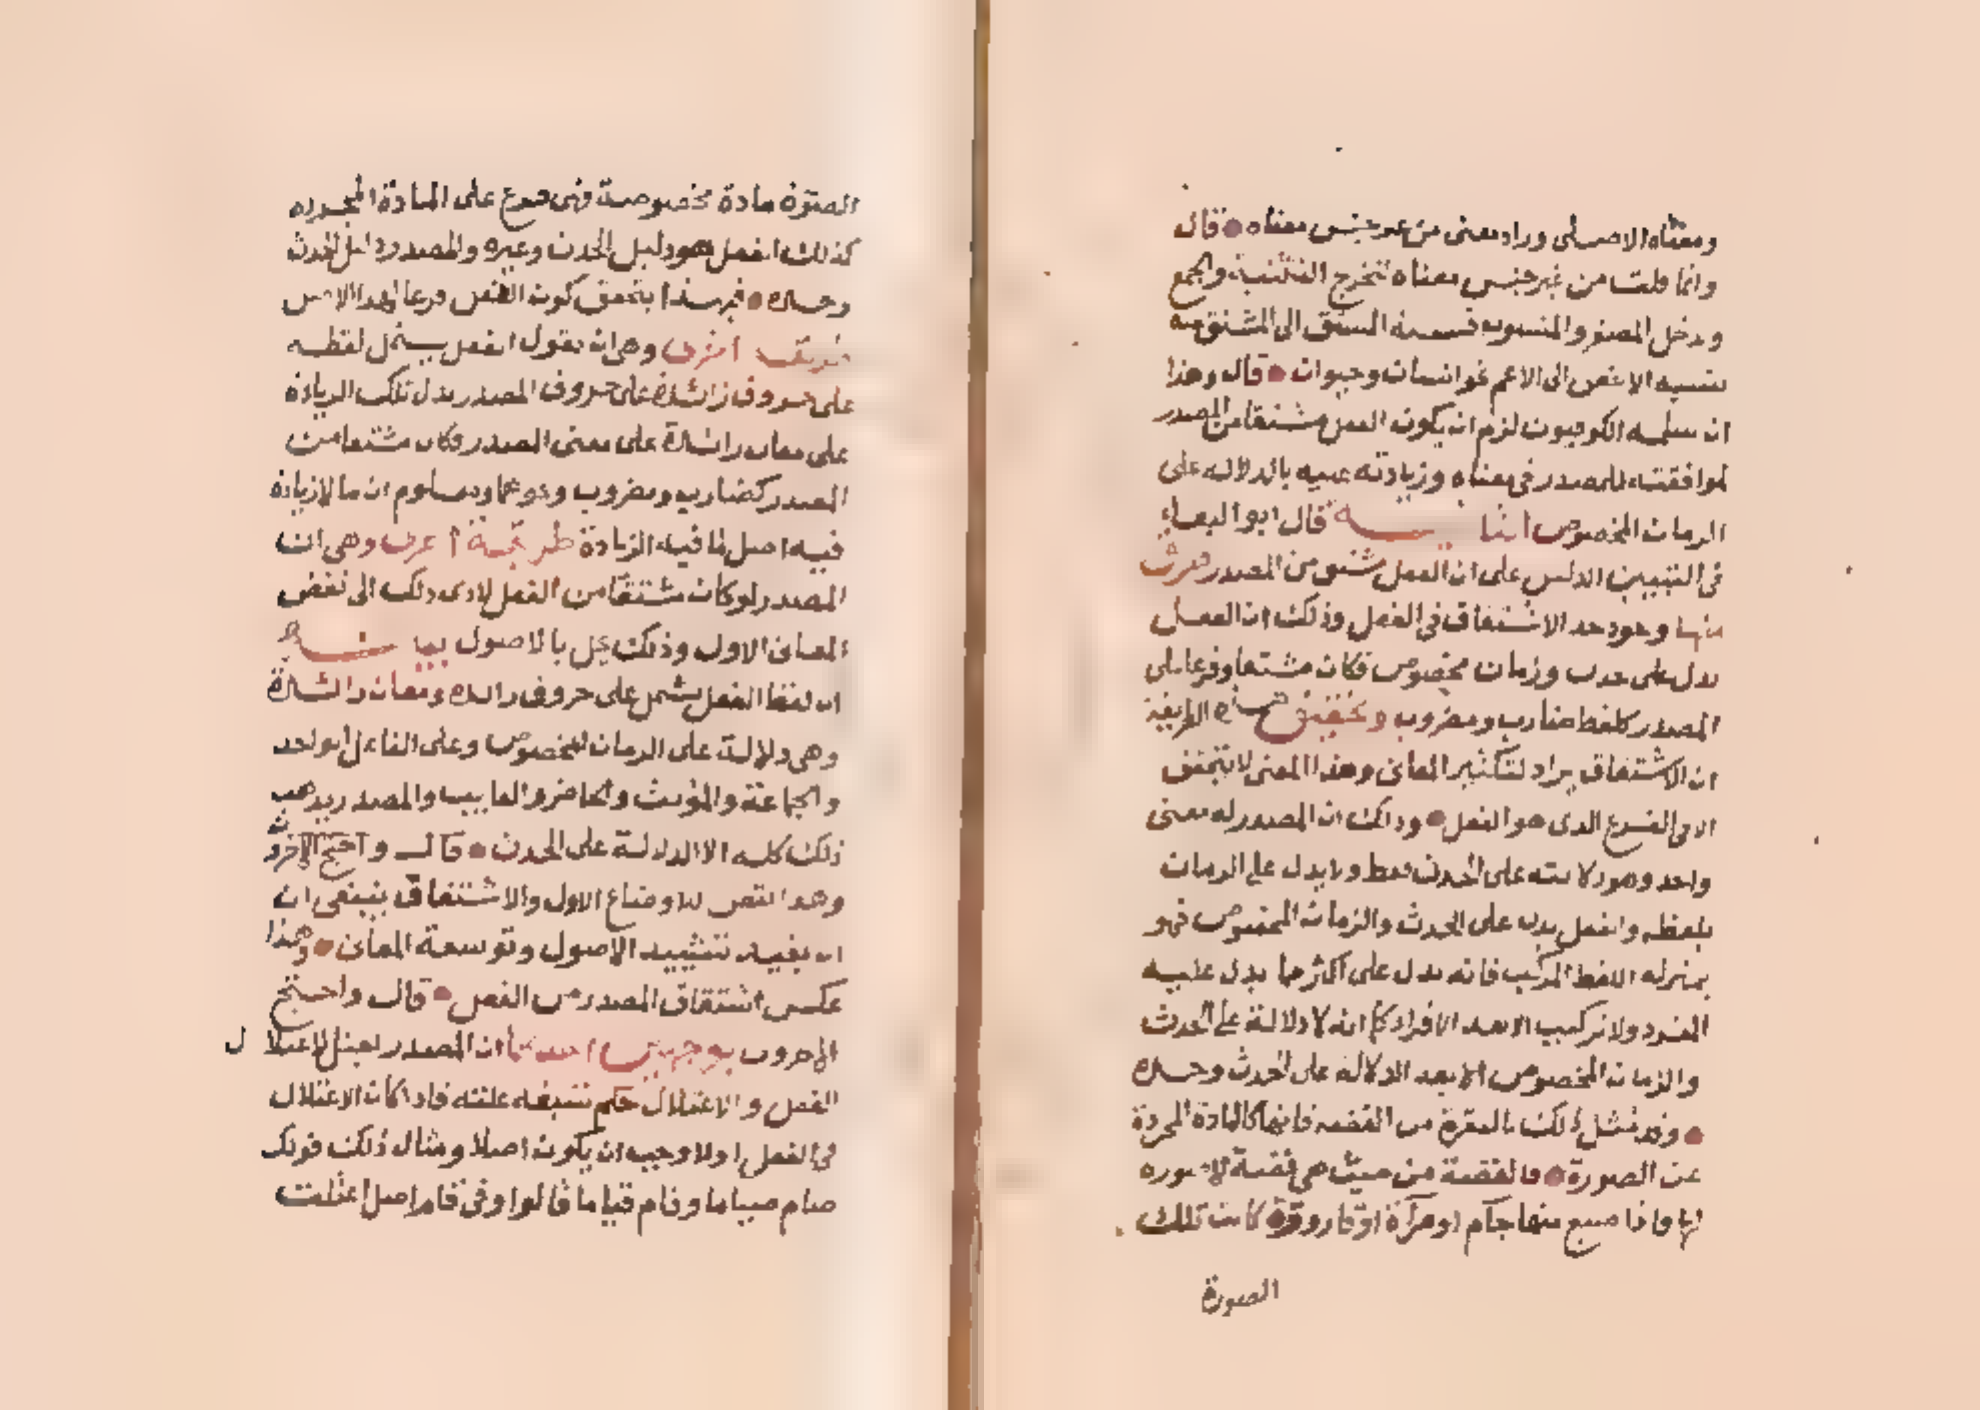 ومعناه الاصلى وزاد معنى من غير جنس معناه قال
وانما قلت من غير جنس معناه لتخرج التثنية والجمع
ويدخل المصغر والمنسوب نسبة المشتق الى المشتق منه
نسبة الاخص الى الاعم نحو انسان وحيوان قال وهذا
ان سلمه الكوفيون لزم ان يكون الفعل مشتقا من المصدر
لموافقته للمصدر فى معناه وزيادته عليه بالدلالة على
الزمان المخصوص قال ابو البقاء
فى التبيين الدليل على ان الفعل مشتق من المصدر طرق
منها وجود حد الاشتقاق فى الفعل وذلك ان الفعل
يدل على حدث وزمان مخصوص فكان مشتقا وفرعا على
المصدر كلفظ ضارب ومضروب وتحقيق هذه الطريقة
ان الاشتقاق يراد لتكثير المعانى وهذا المعنى لا يتحقق
الا فى الفرع الذى هو الفعل وذلك ان المصدر له معنى
واحد وهو دلالته على الحدث فقط ولا يدل على الزمان
بلفظه والفعل يدل على الحدث والزمان المخصوص فهو
بمنزلة اللفظ المركب فانه يدل على اكثر مما يدل عليه
المفرد ولا تركيب الا بعد الافراد كما انه لا دلالة على الحدث
والزمان المخصوص الا بعد الدلالة على الحدث وحده
وقد مثل ذلك بالنقرة من الفضة فانها كالمادة المجردة
عن الصورة فالفضة من حيث هى فضة لا صورة
لها فاذا صيغ منها جام او مرآة او قارورة كانت تلك
الصورة
الصورة مادة مخصوصة فهى فرع على المادة المجردة
كذلك الفعل هو دليل الحدث وغيره والمصدر دليل الحدث
وحده فبهذا يتحقق كون الفعل فرعا لهذا الاصل
طريقة اخرى وهى ان نقول الفعل يشتمل لفظه
على حروف زائدة على حروف المصدر تدل تلك الزيادة
على معان زائدة على معنى المصدر فكان مشتقا من
المصدر كضارب ومضروب ونحوهما ومعلوم ان ما لا زيادة
فيه اصل لما فيه الزيادة طريقة اخرى وهى ان
المصدر لو كان مشتقا من الفعل لادى ذلك الى نقض
المعانى الاول وذلك يخل بالاصول بيانه
ان لفظ الفعل يشتمل على حروف زائدة ومعان زائدة
وهى دلالته على الزمان المخصوص وعلى الفاعل الواحد
والجماعة والمؤنث والحاضر والغائب والمصدر يذهب
ذلك كله الا الدلالة على الحدث قال واحتج الآخرون
وهذا نقض للاوضاع الاول والاشتقاق ينبغى ان
ان يفيد تشييد الاصول وتوسعة المعانى وهذا
عكس اشتقاق المصدر من الفعل قال واحتج
الاخرون بوجهين احدهما ان المصدر يعتل لاعتلال
الفعل والاعتلال حكم تسبقه علته فاذا كان الاعتلال
فى الفعل اولا وجب ان يكون اصلا ومثال ذلك قولك
صام صياما وقام قياما قالوا وفى قام اصل اعتلت